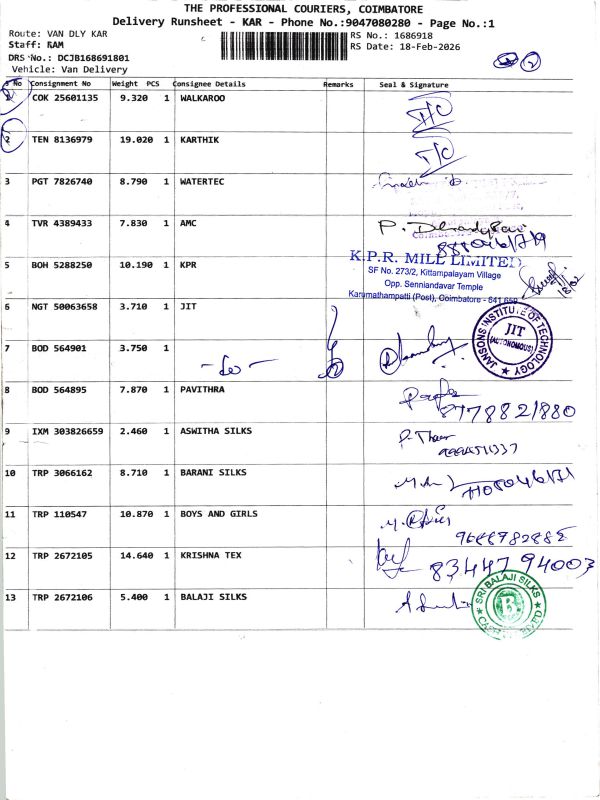 THE PROFESSIONAL COURIERS, COIMBATORE
Delivery Runsheet - KAR - Phone No.:9047080280 - Page No.:1
Route: VAN DLY KAR
RS No.: 1686918
Staff: RAM
RS Date: 18-Feb-2026
DRS No.: DCJB168691801
Vehicle: Van Delivery
No Consignment No Weight PCS Consignee Details Remarks Seal & Signature
1 COK 25601135 9.320 1 WALKAROO
2 TEN 8136979 19.020 1 KARTHIK
3 PGT 7826740 8.790 1 WATERTEC
4 TVR 4389433 7.830 1 AMC
5 BOH 5288250 10.190 1 KPR
K.P.R. MILL LIMITED
SF No. 273/2, Kittampalayam Village
Opp. Senniandavar Temple
Karumathampatti (Post), Coimbatore - 641 659
6 NGT 50063658 3.710 1 JIT
JANSONS INSTITUTE OF TECHNOLOGY
JIT
(AUTONOMOUS)
7 BOD 564901 3.750 1 - do -
8 BOD 564895 7.870 1 PAVITHRA
9 IXM 303826659 2.460 1 ASWITHA SILKS
10 TRP 3066162 8.710 1 BARANI SILKS
11 TRP 110547 10.870 1 BOYS AND GIRLS
12 TRP 2672105 14.640 1 KRISHNA TEX
83447 94003
13 TRP 2672106 5.400 1 BALAJI SILKS
SRI BALAJI SILKS
B